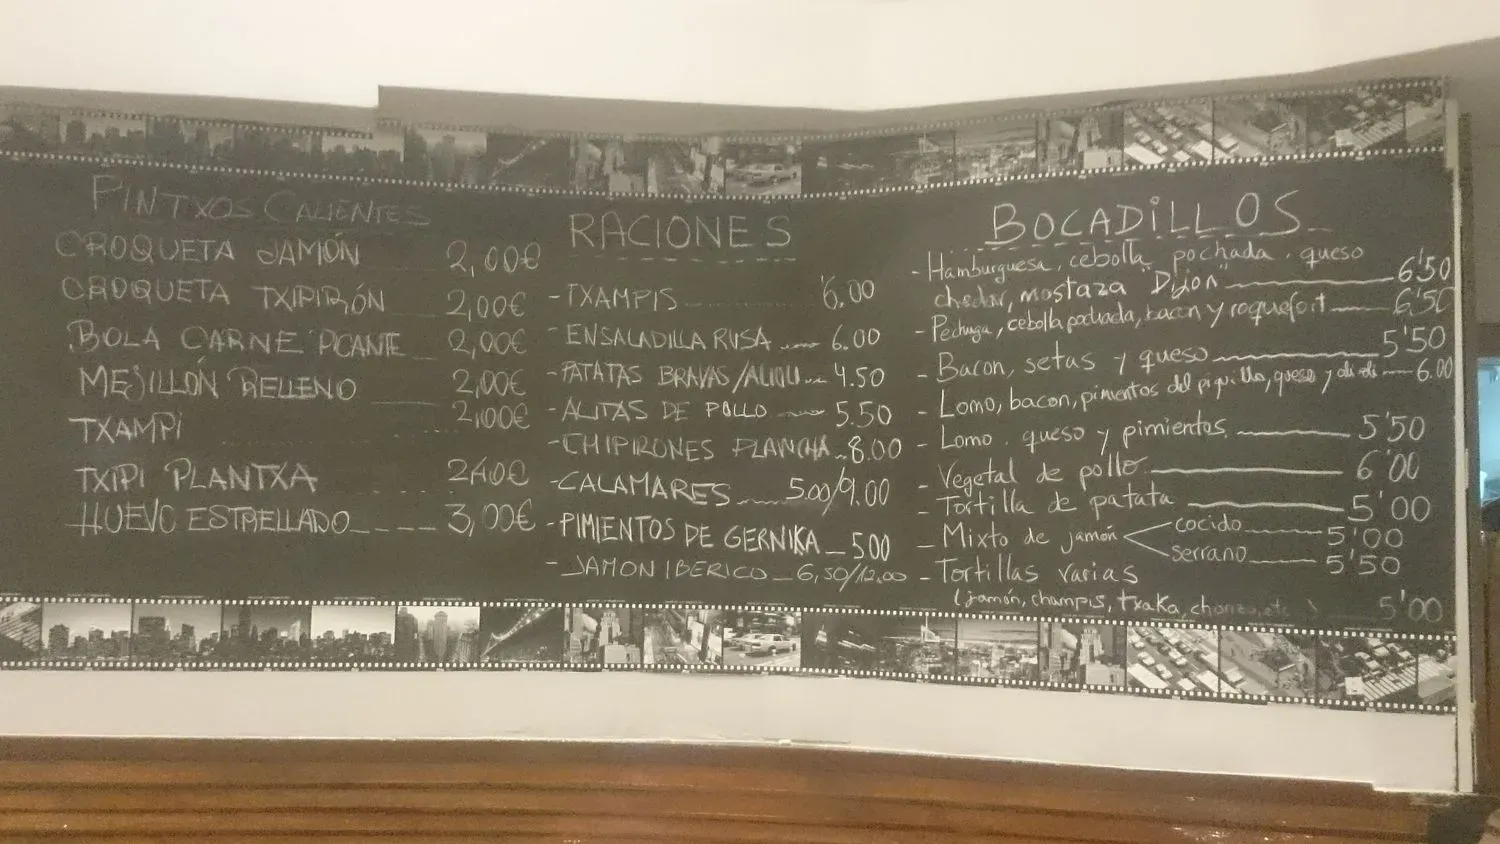 PINTXOS CALIENTES
CROQUETA JAMÓN 2,00€
CROQUETA TXIPIRÓN 2,00€
BOLA CARNE PICANTE 2,00€
MEJILLÓN RELLENO 2,00€
TXAMPI 2,00€
TXIPI PLANTXA 2,40€
HUEVO ESTRELLADO 3,00€
RACIONES
-TXAMPIS 6.00
-ENSALADILLA RUSA 6.00
-PATATAS BRAVAS/ALIOLI 4.50
-ALITAS DE POLLO 5.50
-CHIPIRONES PLANCHA 8.00
-CALAMARES 5.00/9.00
-PIMIENTOS DE GERNIKA 500
-JAMON IBERICO 6,50/12,00
BOCADiLLOS
-Hamburguesa, cebolla pochada, queso
chedar, mostaza "Dijon" 6'50
-Pechuga, cebolla pochada, bacon y roquefort 6'50
-Bacon, setas y queso 5'50
-Lomo, bacon, pimientos del piquillo, queso y ali oli 6.00
-Lomo, queso y pimientos 5'50
-Vegetal de pollo 6'00
-Tortilla de patata 5'00
-Mixto de jamón cocido 5'00
serrano 5'50
-Tortillas varias
(jamón, champis, txaka, chorizo, etc) 5'00